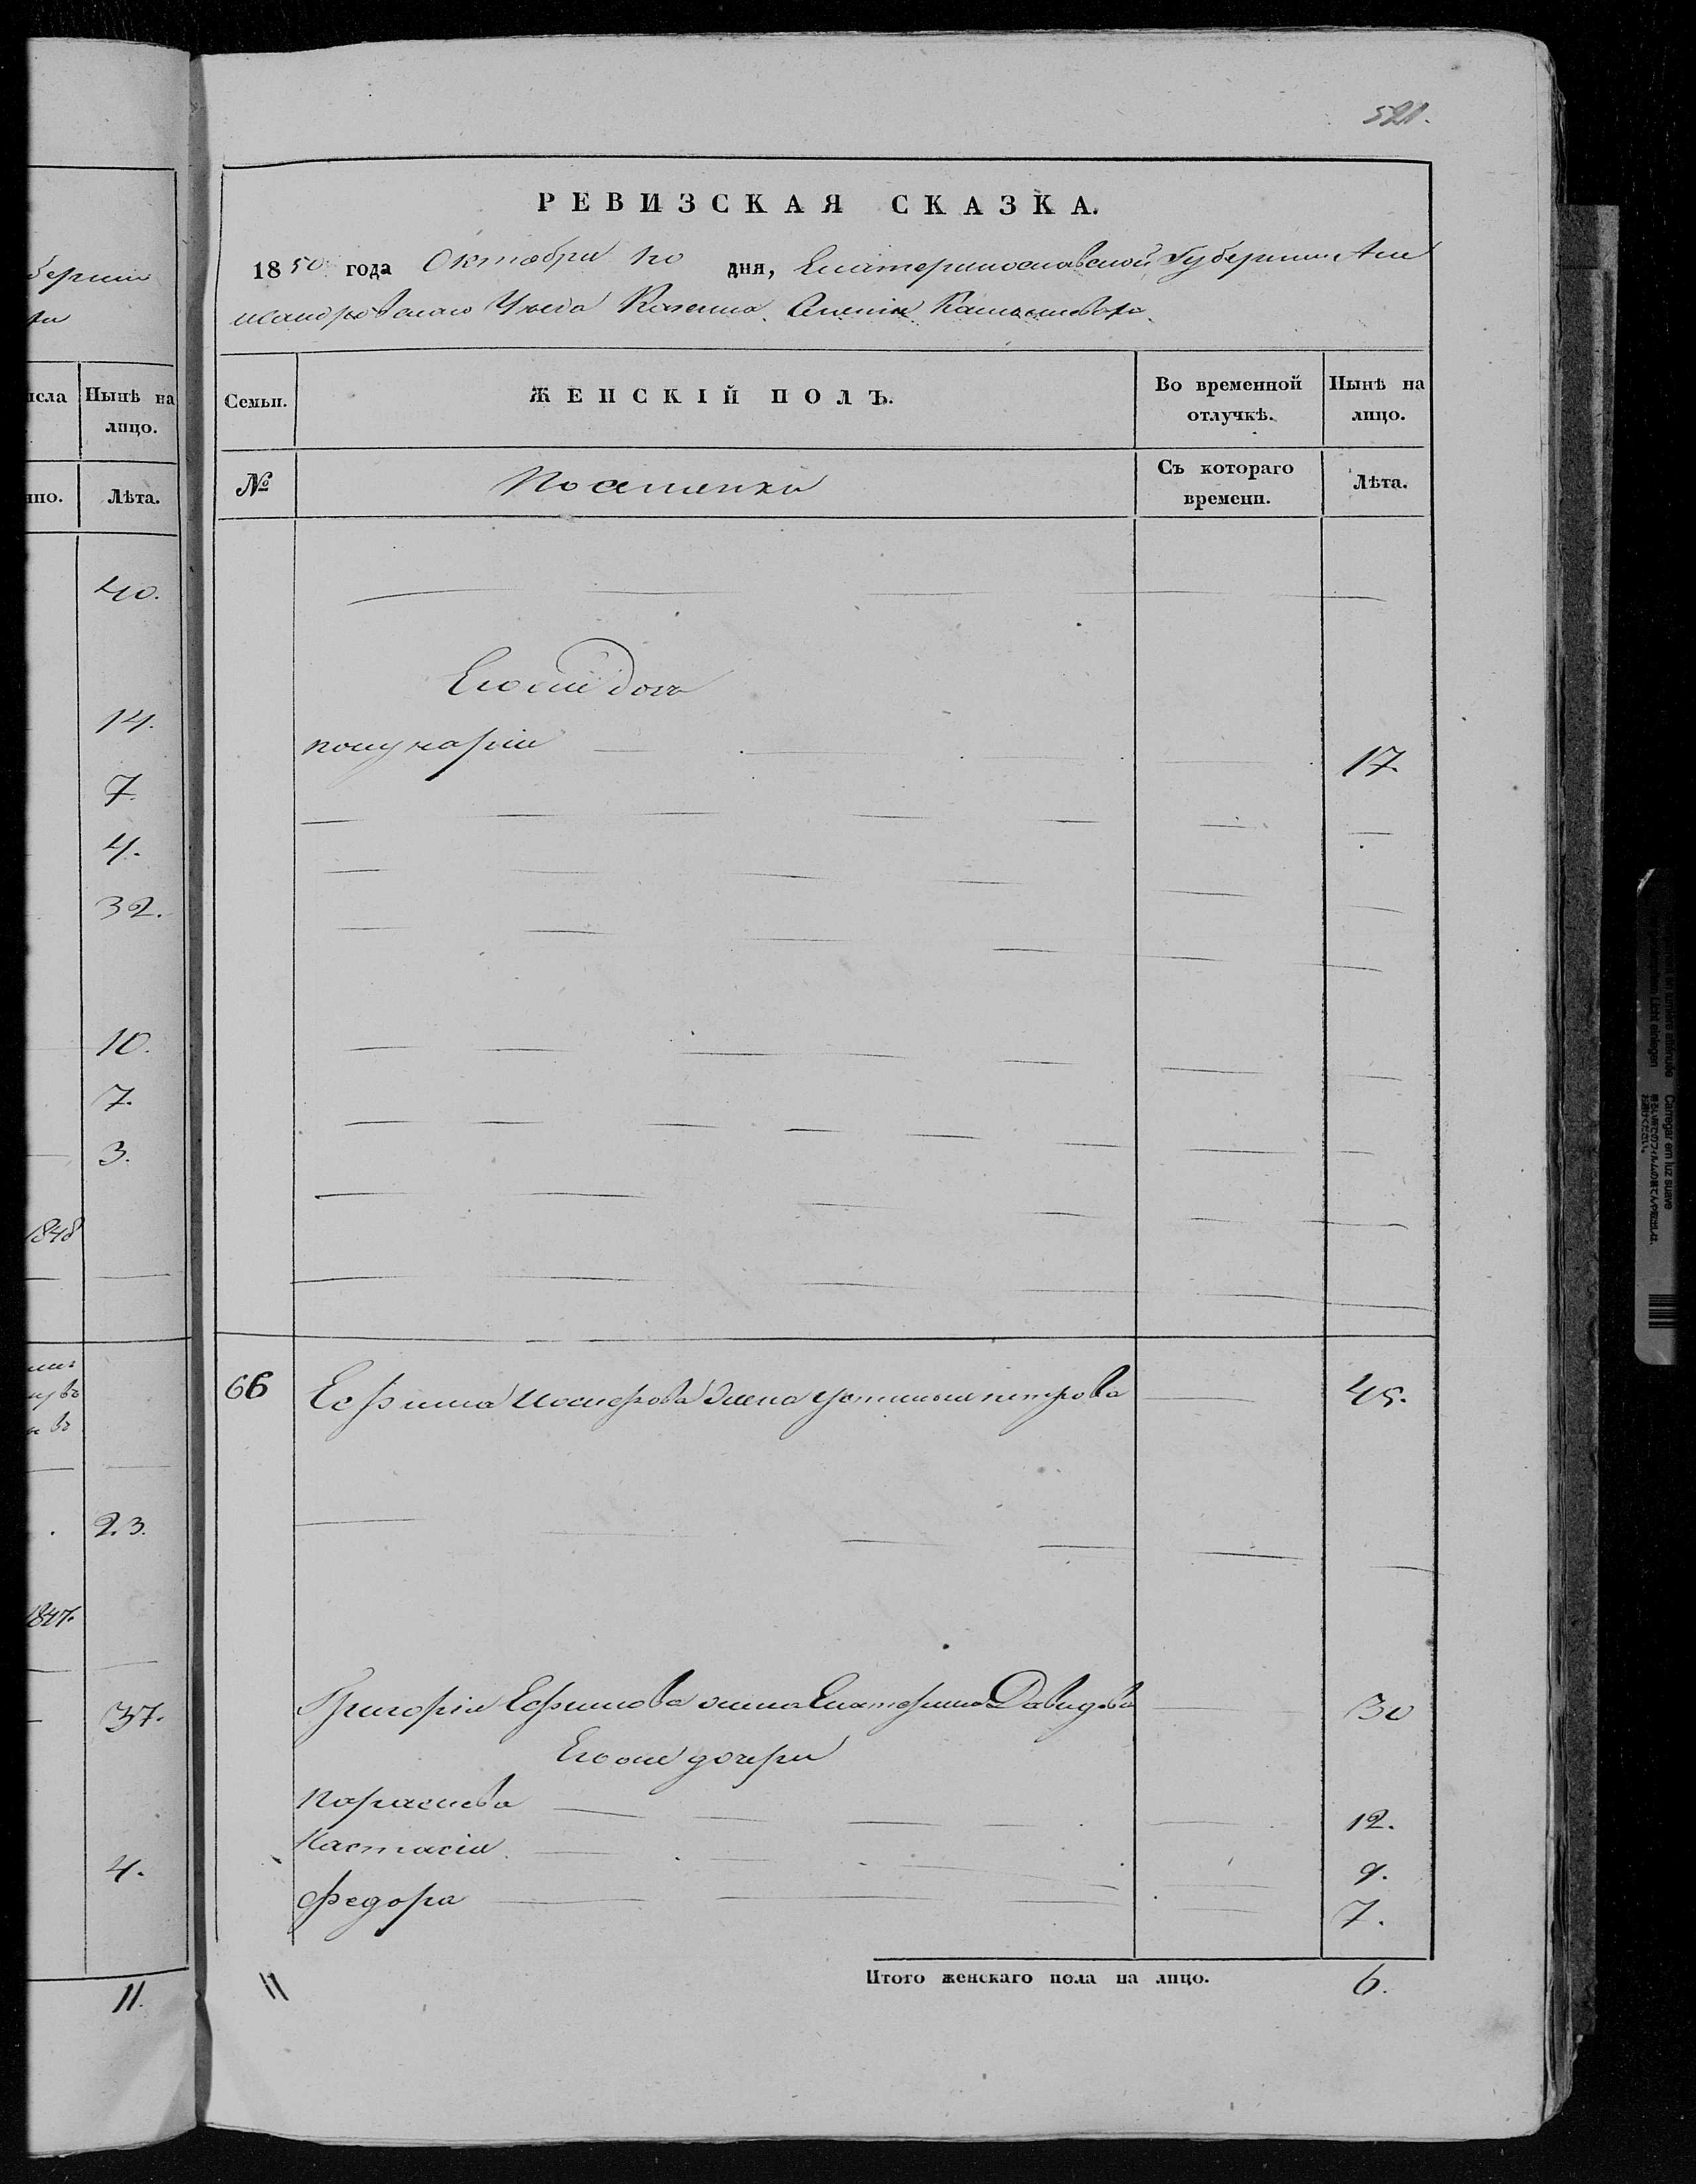 берніи
исла Нынѣ на
лицо.
нно. Лѣта.
40.
14.
7.
4.
32.
10.
7.
3.
1848
въ
23.
1847.
37.
4.
11.
521.
РЕВИЗСКАЯ СКАЗКА.
1850 года Октября 20 дня, Екатеринославской Губерніи Але
ксандровскаго Уѣзда Казеннаго Селенія
Семьи. ЖЕНСКІЙ ПОЛЪ. Во временной отлучкѣ. Нынѣ на лицо.
№ Поселенки Съ котораго времени. Лѣта.
Его дочь
17.
66 Ефима жена Петрова 45.
Григорія Ефимова жена Екатерина Давидова 30
Его дочери
Параскева 12.
Настасія 9.
Федора 7.
Итого женскаго пола на лицо. 6.